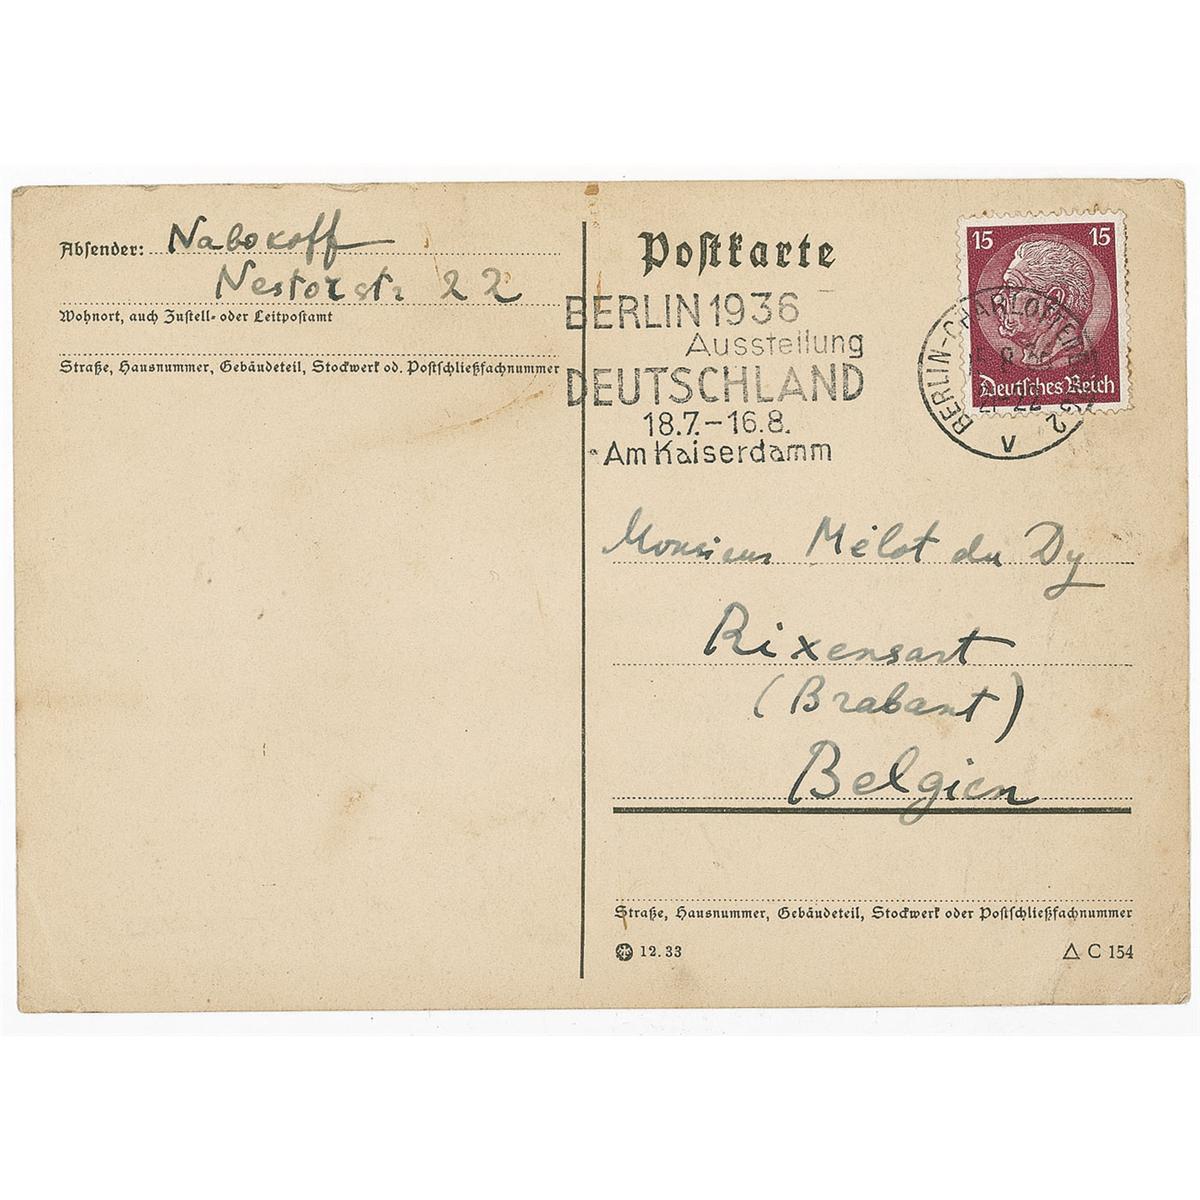 Absender: Nabokoff
Nestorstr 22
Wohnort, auch Zustell- oder Leitpostamt
Straße, Hausnummer, Gebäudeteil, Stockwerk od. Postschließfachnummer
Postkarte
BERLIN 1936
Ausstellung
DEUTSCHLAND
18.7.-16.8.
Am Kaiserdamm
15 15
Deutsches Reich
BERLIN-CHARLOTTENBURG 2
21-22
V
Monsieur Mélot du Dy
Rixensart
(Brabant)
Belgien
Straße, Hausnummer, Gebäudeteil, Stockwerk oder Postschließfachnummer
12.33
C 154